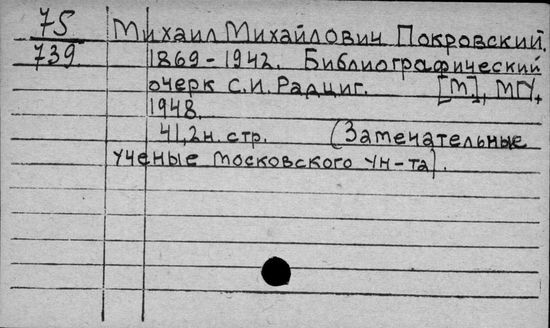 75 Михаил Михайлович Покровский.
739 1869-1942. Библиографический
очерк С.И. Радциг. [М], МГУ,
1948.
41,2н. стр. (Замечательные
ученые Московского Ун-та).